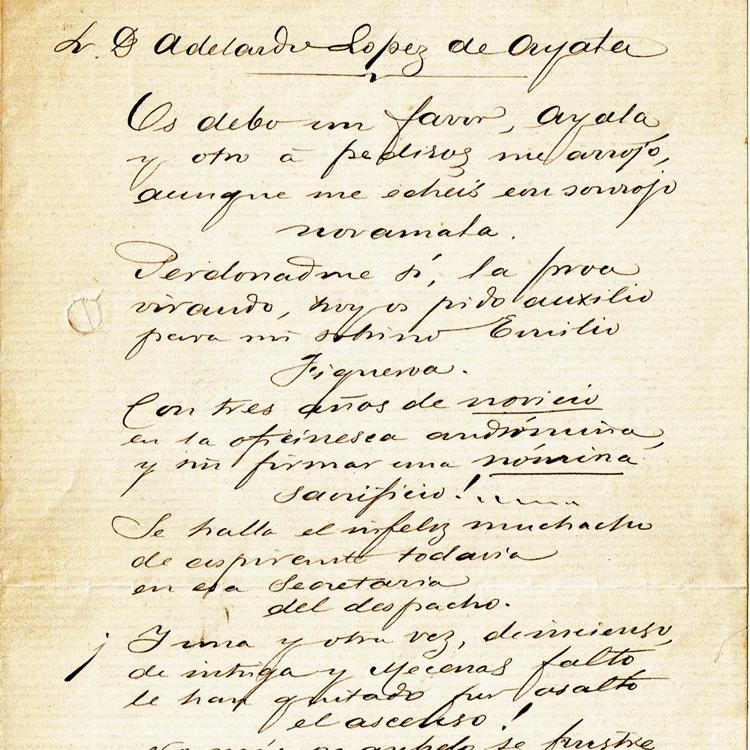 Sr. D Adelardo Lopez de Ayala
Os debo un favor, Ayala
y otro á pediros me arrojo,
aunque me echéis con sonrojo
noramala.
Perdonadme si, la proa
virando, hoy os pido auxilio
para mi sobrino Emilio
Figueroa.
Con tres años de novicio
en la oficinesca andrómina,
y sin firmar una nómina
sacrificio!
Se halla el infeliz muchacho
de aspirante todavia
en esa Secretaria
del despacho.
¡Y una y otra vez,
de intriga y Mecenas falto
le han quitado por asalto
el ascenso!
se frustre